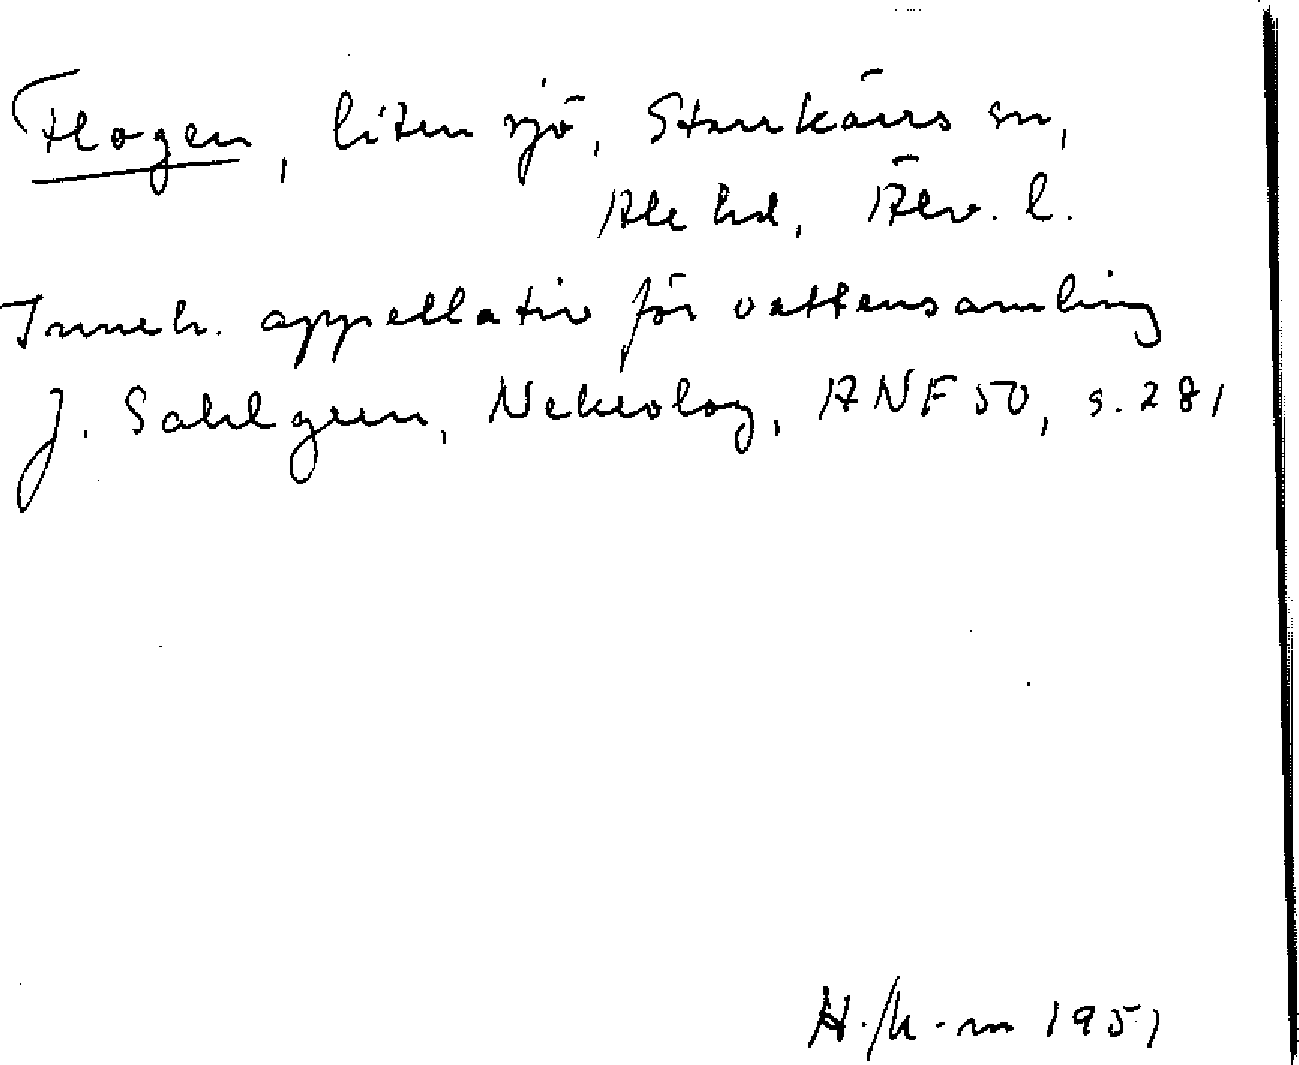 Flogen, liten sjö, Starrkärrs sn,
Ale hd, Älv. l.
Inneh. appellativ för vattensamling
J. Sahlgren, Nekrolog, ANF 50, s. 281
1951